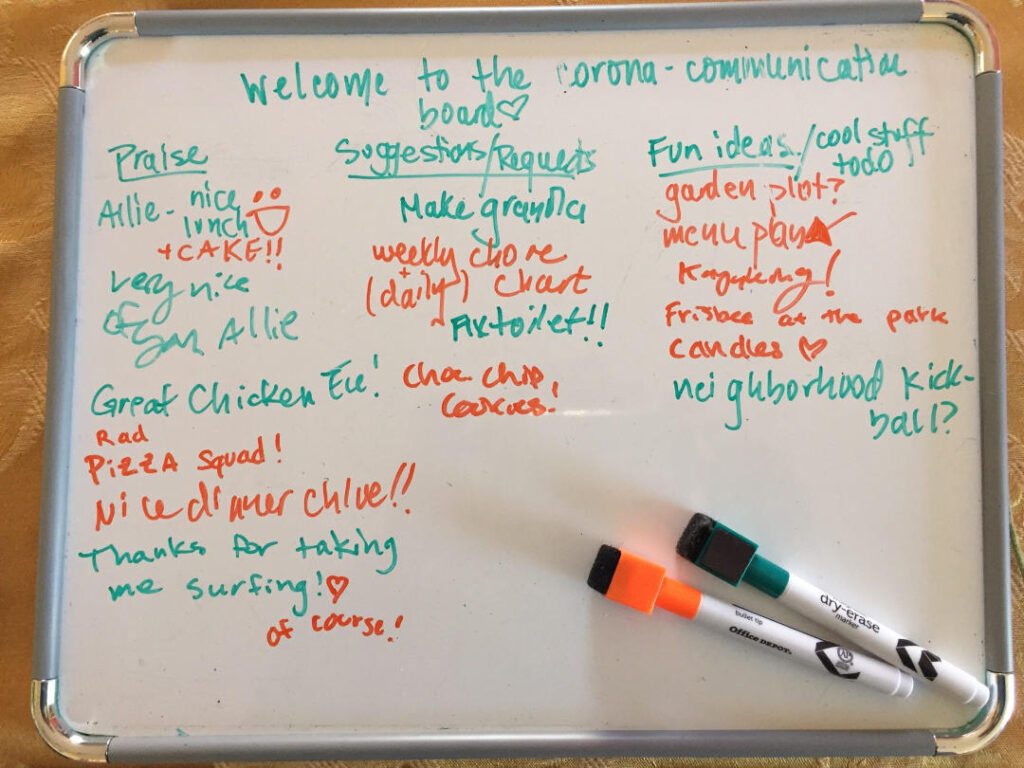 Welcome to the corona-communication
board♡
Praise
Allie - nice
lunch
+ CAKE!!
very nice
of Allie
Great Chicken Evie!
Rad
PIZZA Squad!
Nice dinner Chloe!!
Thanks for taking
me surfing!♡
of course!
Suggestions/Requests
Make granola
weekly chore
+
(daily) chart
~ Fix toilet!!
Choc chip
Cookies!
Fun ideas/cool stuff
todo
garden plot?
menu plan
Kayaking!
Frisbee at the park
candles ♡
neighborhood kick-
ball?
dry-erase
marker
bullet tip
Office DEPOT.